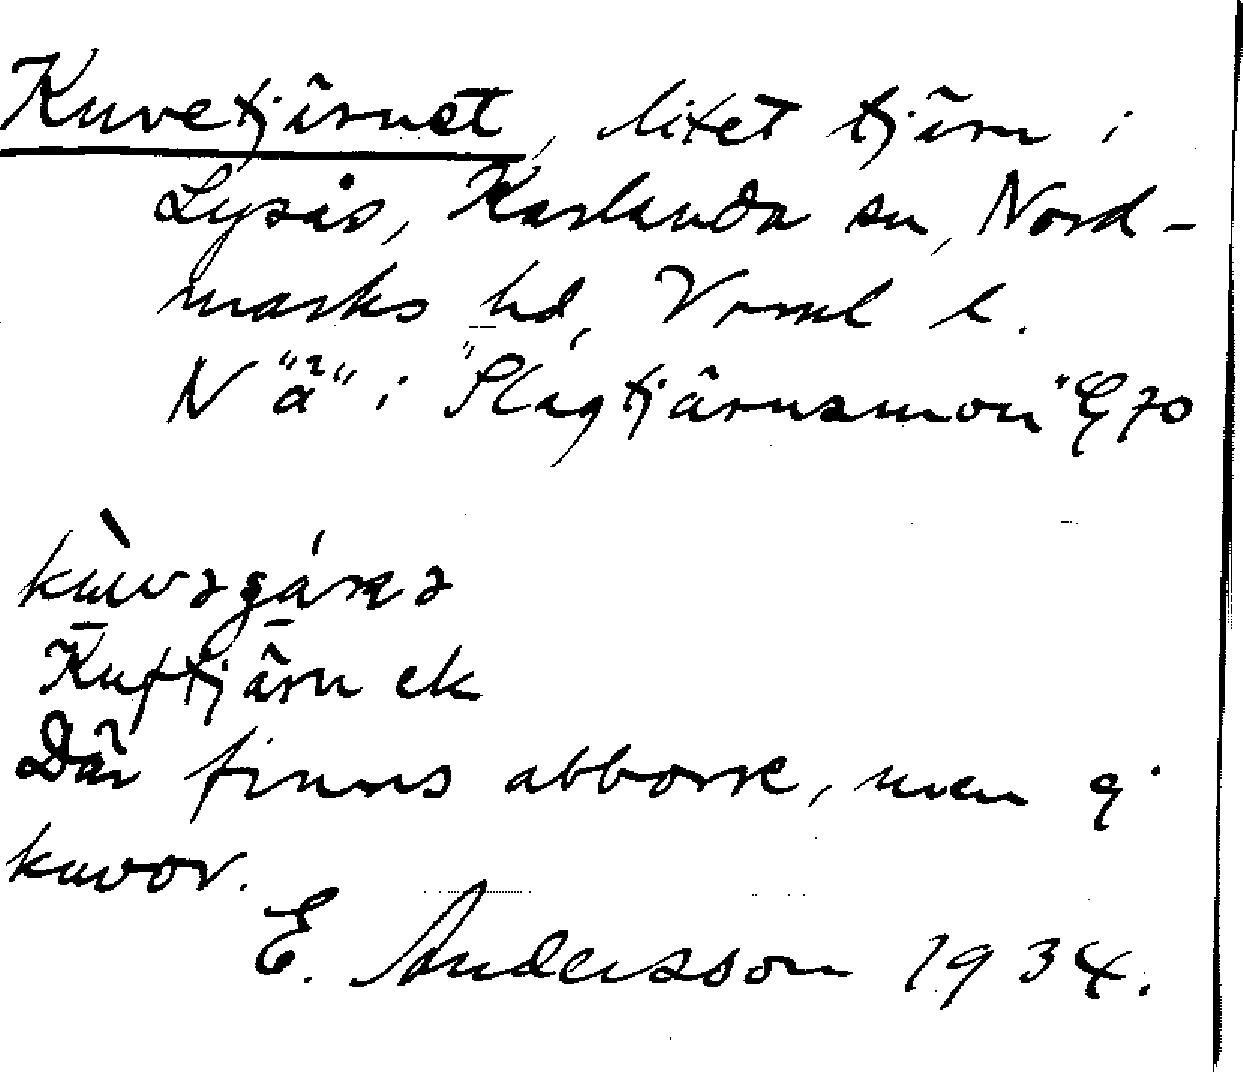 Kuvetjärnet, litet tjärn i
Lysås, Karlanda sn, Nord-
marks hd, Vrml l.
N "ä" i "Slagtjärnsmon" E70
Kuftjärn ek
Där finns abborre, men ej
kuvor.
E. Andersson 1934.